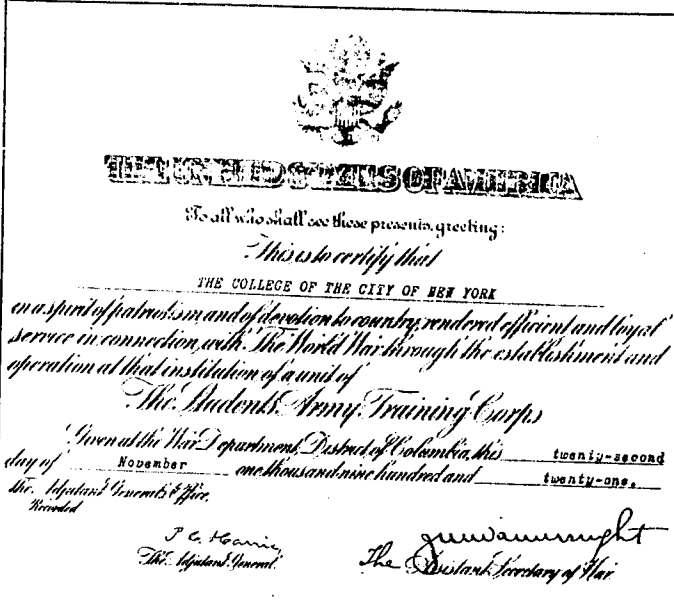 THE UNITED STATES OF AMERICA
To all who shall see these presents, greeting:
This is to certify that
THE COLLEGE OF THE CITY OF NEW YORK
in a spirit of patriotism and of devotion to country, rendered efficient and loyal
service in connection with The World War through the establishment and
operation at that institution of a unit of
The Students Army Training Corps
Given at the War Department, District of Columbia, this twenty-second
day of November one thousand nine hundred and twenty-one.
The Adjutant General's Office.
Recorded
P. C. Harris
The Adjutant General.
The Assistant Secretary of War